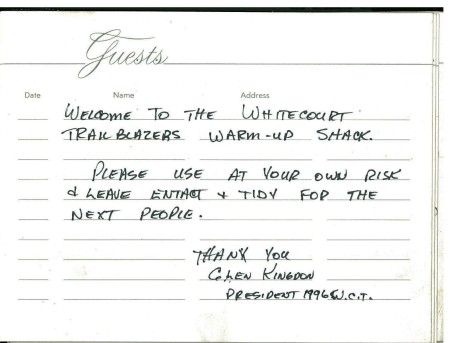 Guests
Date Name Address
WELCOME TO THE WHITECOURT
TRAIL BLAZERS WARM-UP SHACK.
PLEASE USE AT YOUR OWN RISK
& LEAVE ENTACT & TIDY FOR THE
NEXT PEOPLE.
THANK YOU
GLEN KINGDON
PRESIDENT 1996 W.C.T.